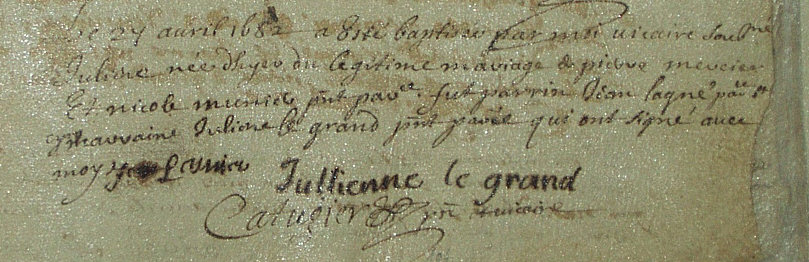 Le 27 avril 1682 a esté baptisee par moi vicaire soubne
Juliene née d'hyer du legitime mariage de pierre mercier
Et nicole munier pnt parre fut parrin Jean lagne parre et
marraine Juliene le grand pnt parre qui ont signé avec
moy
Jullienne le grand
pr vicaire